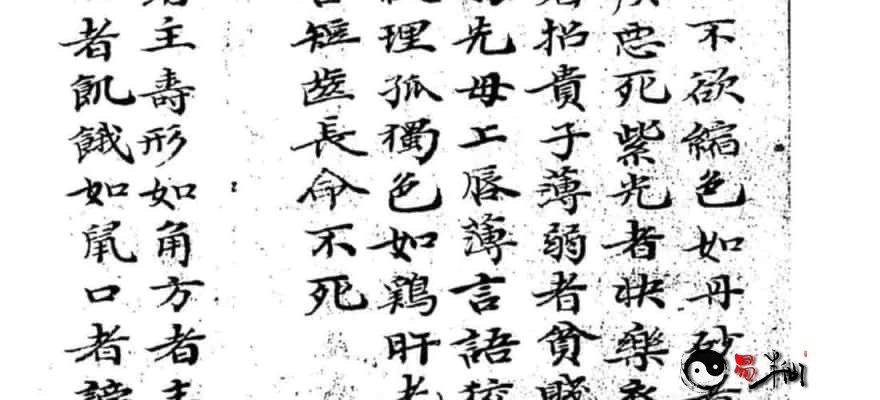 不欲縮色如丹砂
惡死紫光者快樂
招貴子薄弱者貧賤
先母上唇薄言語
理孤獨色如鷄肝者
短齒長命不死
主壽形如角方者主
者飢餓如鼠口者
易